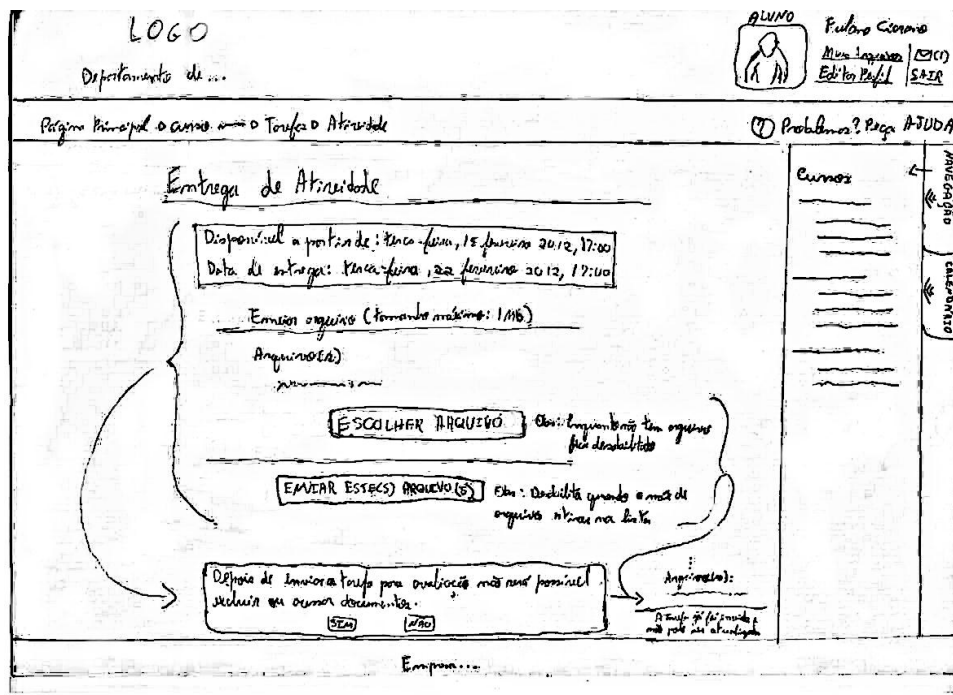 LOGO
Departamento de ...
ALUNO
Fulano Ciorano
Meus |✉(1)
Editar Perfil | SAIR
Página Principal > curso > Tarefas > Atividade
(?) Problemas? Peça AJUDA
Entrega de Atividade
Disponível a partir de: terça-feira, 15 fevereiro 2012, 17:00
Data de entrega: terça-feira, 22 fevereiro 2012, 17:00
Enviar arquivo (tamanho máximo: 1MB)
Arquivo(s)
ESCOLHER ARQUIVO
Obs: Enquanto não tem arquivo
fica desabilitado
ENVIAR ESTE(S) ARQUIVO(S)
Obs: Desabilita quando
arquivo na lista
Depois de enviar a tarefa para avaliação não será possível
excluir ou documentos.
SIM NÃO
Arquivo(s):
A tarefa já foi enviada e
não pode ser atualizada
Cursos
NAVEGAÇÃO
CALENDÁRIO